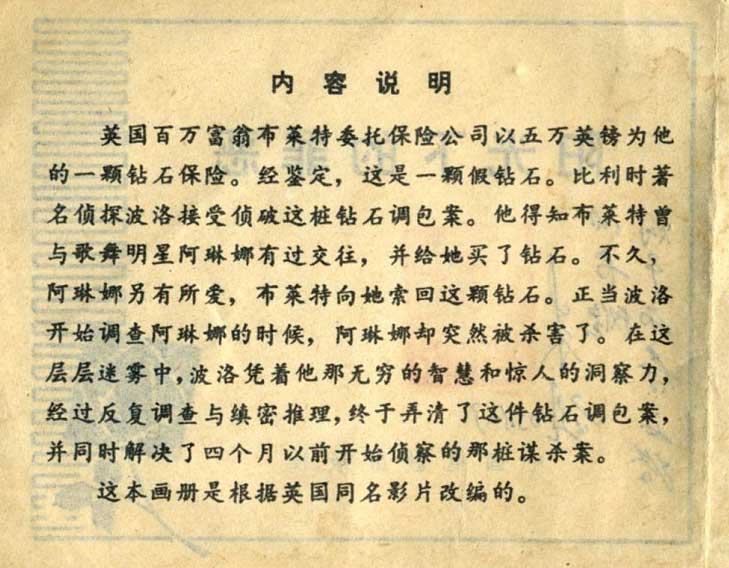 内容说明
英国百万富翁布莱特委托保险公司以五万英镑为他
的一颗钻石保险。经鉴定，这是一颗假钻石。比利时著
名侦探波洛接受侦破这桩钻石调包案。他得知布莱特曾
与歌舞明星阿琳娜有过交往，并给她买了钻石。不久，
阿琳娜另有所爱，布莱特向她索回这颗钻石。正当波洛
开始调查阿琳娜的时候，阿琳娜却突然被杀害了。在这
层层迷雾中，波洛凭着他那无穷的智慧和惊人的洞察力，
经过反复调查与缜密推理，终于弄清了这件钻石调包案，
并同时解决了四个月以前开始侦察的那桩谋杀案。
这本画册是根据英国同名影片改编的。